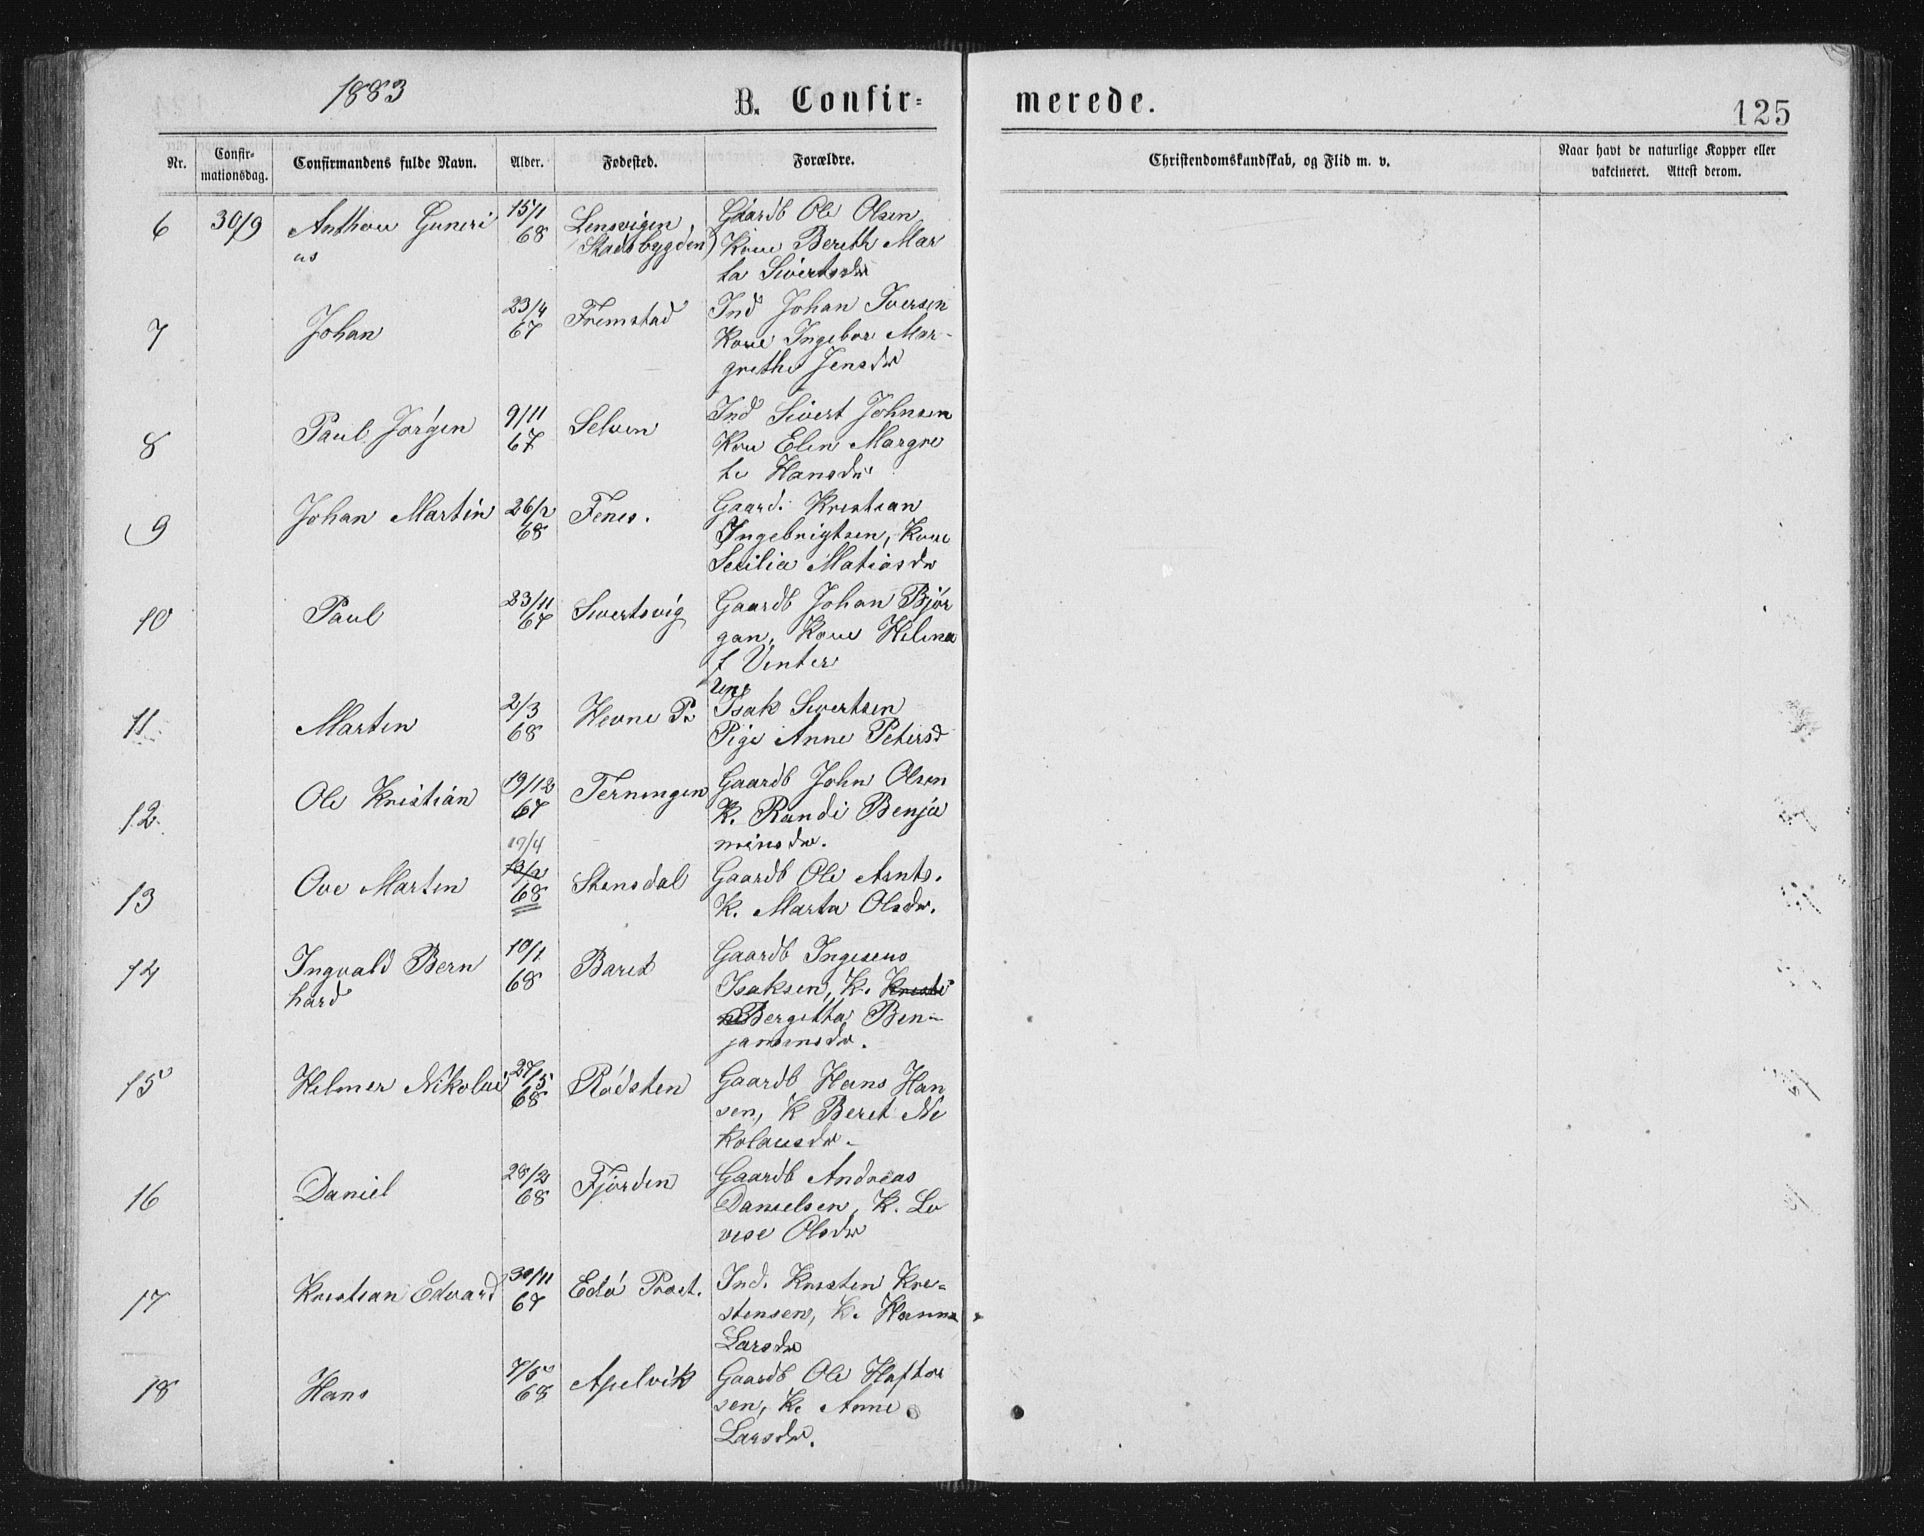 1883
B. Confir=
merede.
125
Nr.
Confir-
mationsdag.
Confirmandens fulde Navn.
Alder.
Fødested.
Forældre.
Christendomskundskab, og Flid m. v.
Naar havt de naturlige Kopper eller
vakcineret. Attest derom.
6 30/9 Anthon Guneri
us
15/1
68
Lensvigen
(Stadsbygden)
Gaardb Ole Olsen
Kone Bereth Mar
ta Sivertsdr
7 Johan
23/4
67
Fremstad
Ind Johan Iversen
Kone Ingebor Mar-
grethe Jensdr
8 Paul Jörgen
9/11
67
Selven
Ind Sivert Johnsen
Kone Elen Margre
te Hansdr
9 Johan Martin
26/2
68
Fenes.
Gaard. Kristian
Ingebrigtsen, Kone
Secilia Matiasdr
10 Paul
23/11
67
Sivertsvig
Gaardb Johan Björ
gan, Kone Helena
f Vinter
11 Martin
2/3
68
Hevne Pr
Isak Sivertsen
Pige Anne Petersd
12 Ole Kristian
19/12
67
Terningen
Gaardb John Olsen
K. Randi Benja
minsdr.
13 Ove Martin
19/4
68
Stensdal
Gaardb Ole Arnts.
K. Marta Olsdr.
14 Ingvald Bern
hard
10/1
68
Baret
Gaardb Ingeseus
Isaksen, K. Kristi
ne Bergitta Ben-
jaminsdr.
15 Helmer Nikolai
27/5
68
Rödsten
Gaardb Hans Han
sen, K Beret Ni
kolausdr.
16 Daniel
28/2
68
Fjorden
Gaardb Andreas
Danielsen, K. Lo
vise Olsdr
17 Kristian Edvard
30/11
67
Edö Præst.
Ind. Kristen Kri-
stensen, K. Hanna
Larsdr
18 Hans
7/5
68
Apelvik
Gaardb Ole Haftor
sen, K. Anne
Larsdr.